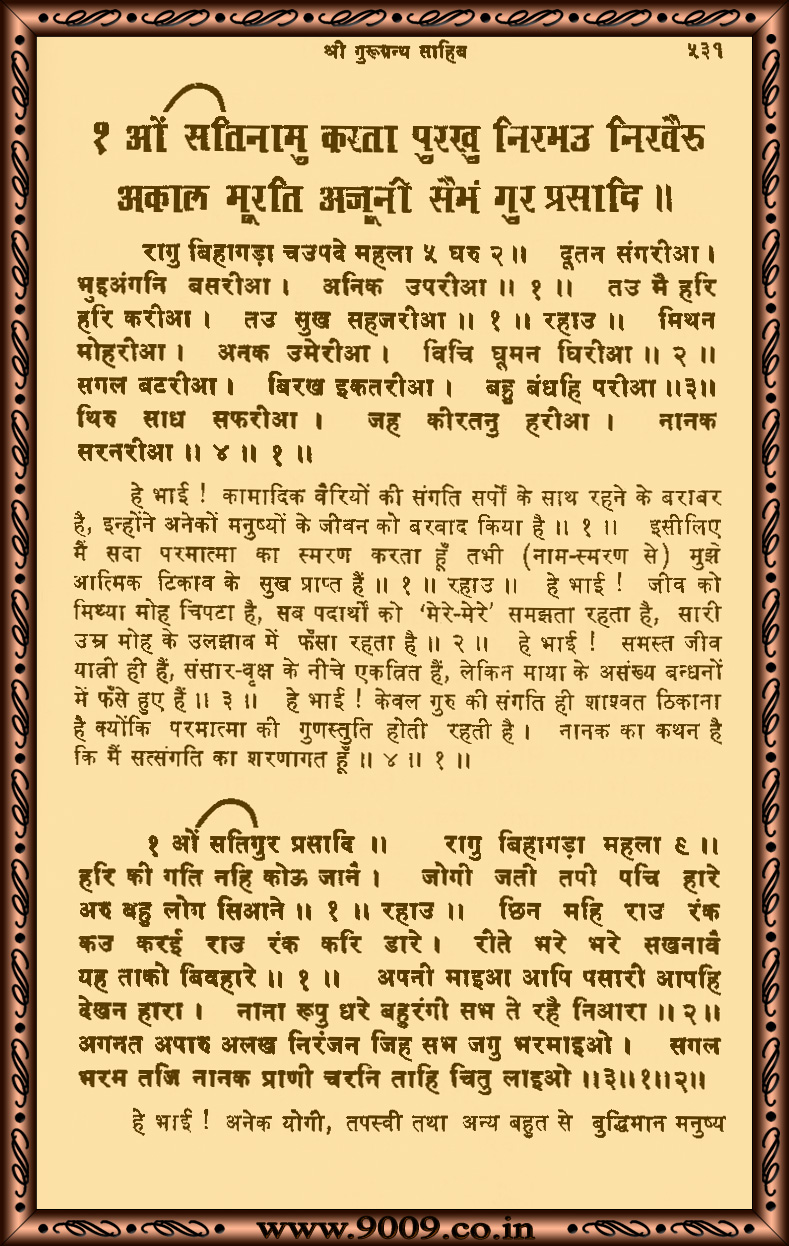 श्री गुरूग्रन्थ साहिब ५३१
१ ओं सतिनामु करता पुरखु निरभउ निरवैरु
अकाल मूरति अजूनी सैभं गुर प्रसादि ॥
रागु बिहागड़ा चउपदे महला ५ घरु २ ॥ दूतन संगरीआ ।
भुइअंगनि बसरीआ । अनिक उपरीआ ॥ १ ॥ तउ मै हरि
हरि करीआ । तउ सुख सहजरीआ ॥ १ ॥ रहाउ ॥ मिथन
मोहरीआ । अनक उमेरीआ । विचि घूमन घिरीआ ॥ २ ॥
सगल बटरीआ । बिरख इकतरीआ । बहु बंधहि परीआ ॥३॥
थिरु साध सफरीआ । जह कीरतनु हरीआ । नानक
सरनरीआ ॥ ४ ॥ १ ॥
हे भाई ! कामादिक वैरियों की संगति सर्पों के साथ रहने के बराबर
है, इन्होंने अनेकों मनुष्यों के जीवन को बरवाद किया है ॥ १ ॥ इसीलिए
मैं सदा परमात्मा का स्मरण करता हूँ तभी (नाम-स्मरण से) मुझे
आत्मिक टिकाव के सुख प्राप्त हैं ॥ १ ॥ रहाउ ॥ हे भाई ! जीव को
मिथ्या मोह चिपटा है, सब पदार्थों को ‘मेरे-मेरे’ समझता रहता है, सारी
उम्र मोह के उलझाव में फँसा रहता है ॥ २ ॥ हे भाई ! समस्त जीव
यात्री ही हैं, संसार-वृक्ष के नीचे एकत्रित हैं, लेकिन माया के असंख्य बन्धनों
में फँसे हुए हैं ॥ ३ ॥ हे भाई ! केवल गुरु की संगति ही शाश्वत ठिकाना
है क्योंकि परमात्मा की गुणस्तुति होती रहती है । नानक का कथन है
कि मैं सत्संगति का शरणागत हूँ ॥ ४ ॥ १ ॥
१ ओं सतिगुर प्रसादि ॥ रागु बिहागड़ा महला ९ ॥
हरि की गति नहि कोऊ जानै । जोगी जती तपी पचि हारे
अरु बहु लोग सिआने ॥ १ ॥ रहाउ ॥ छिन महि राउ रंक
कउ करई राउ रंक करि डारे । रीते भरे भरे सखनावै
यह ताको बिवहारे ॥ १ ॥ अपनी माइआ आपि पसारी आपहि
देखन हारा । नाना रूपु धरे बहुरंगी सभ ते रहै निआरा ॥ २ ॥
अगनत अपारु अलख निरंजन जिह सभ जगु भरमाइओ । सगल
भरम तजि नानक प्राणी चरनि ताहि चितु लाइओ ॥३॥१॥२॥
हे भाई ! अनेक योगी, तपस्वी तथा अन्य बहुत से बुद्धिमान मनुष्य
www.9009.co.in